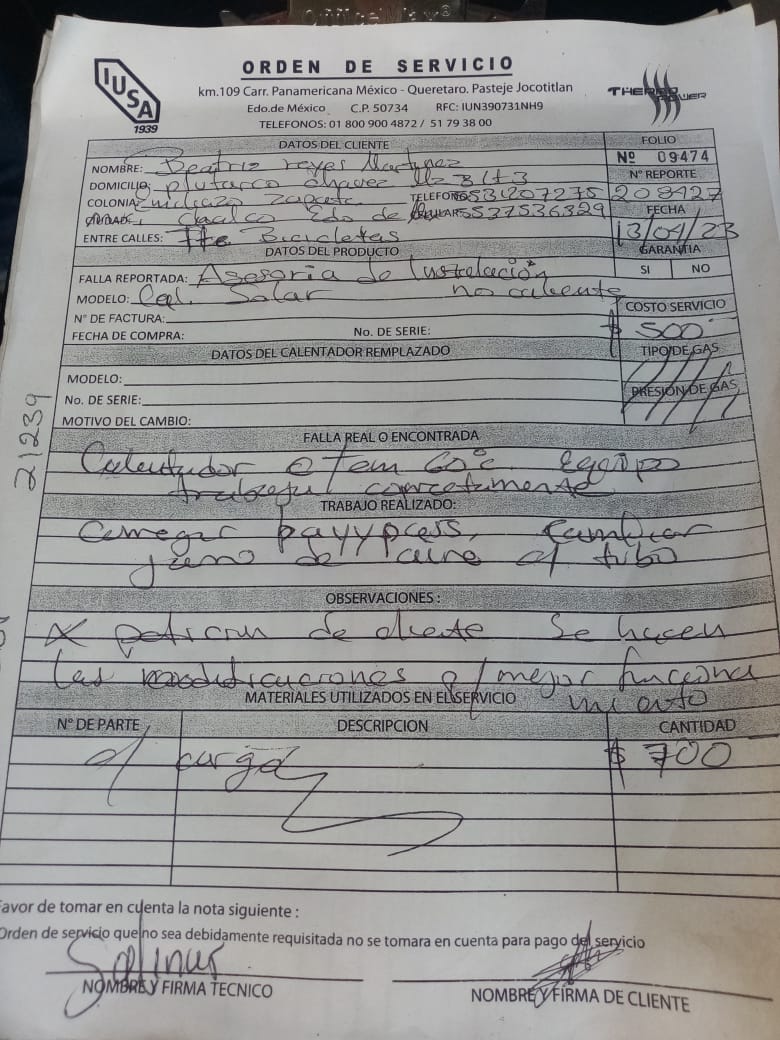 OfficeMax®
ORDEN DE SERVICIO
IUSA
1939
km.109 Carr. Panamericana México - Queretaro. Pasteje Jocotitlan
Edo.de México C.P. 50734 RFC: IUN390731NH9
TELEFONOS: 01 800 900 4872 / 51 79 38 00
THERMO POWER
DATOS DEL CLIENTE
FOLIO
Nº 09474
NOMBRE: Beatriz reyes Martinez
Nº REPORTE
208427
DOMICILIO: plutarco chavez Mz 3 lt 3
COLONIA: Emiliano Zapata TELEFONO: 5531207275
Chalco Edo de 5537536329
FECHA
13/04/23
ENTRE CALLES: Tte Bicicletas
DATOS DEL PRODUCTO
GARANTIA
SI NO
FALLA REPORTADA: Asesoria de Instalación
MODELO: Cal. Solar no caliente
Nº DE FACTURA:
COSTO SERVICIO
$ 500
FECHA DE COMPRA: No. DE SERIE:
DATOS DEL CALENTADOR REMPLAZADO
TIPO DE GAS
MODELO:
PRESIÓN DE GAS
No. DE SERIE:
MOTIVO DEL CAMBIO:
21239
FALLA REAL O ENCONTRADA
Calentador tem 60°c Equipo
TRABAJO REALIZADO:
cambiar
de aire tubo
OBSERVACIONES :
peticion de cliente se hacen
las modificaciones p/mejor funciona
miento
MATERIALES UTILIZADOS EN EL SERVICIO
Nº DE PARTE DESCRIPCION CANTIDAD
cargo $ 700
Favor de tomar en cuenta la nota siguiente :
Orden de servicio que no sea debidamente requisitada no se tomara en cuenta para pago del servicio
Salinas
NOMBRE Y FIRMA TECNICO
NOMBRE Y FIRMA DE CLIENTE